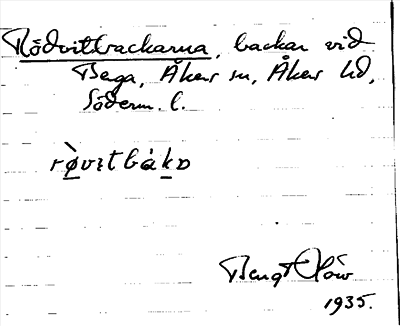 Rödvitbackarna, backar vid
Bega, Åkers sn, Åkers hd,
Söderm. l.
rø̀vɪtbákɒ
Bengt Olów
1935.